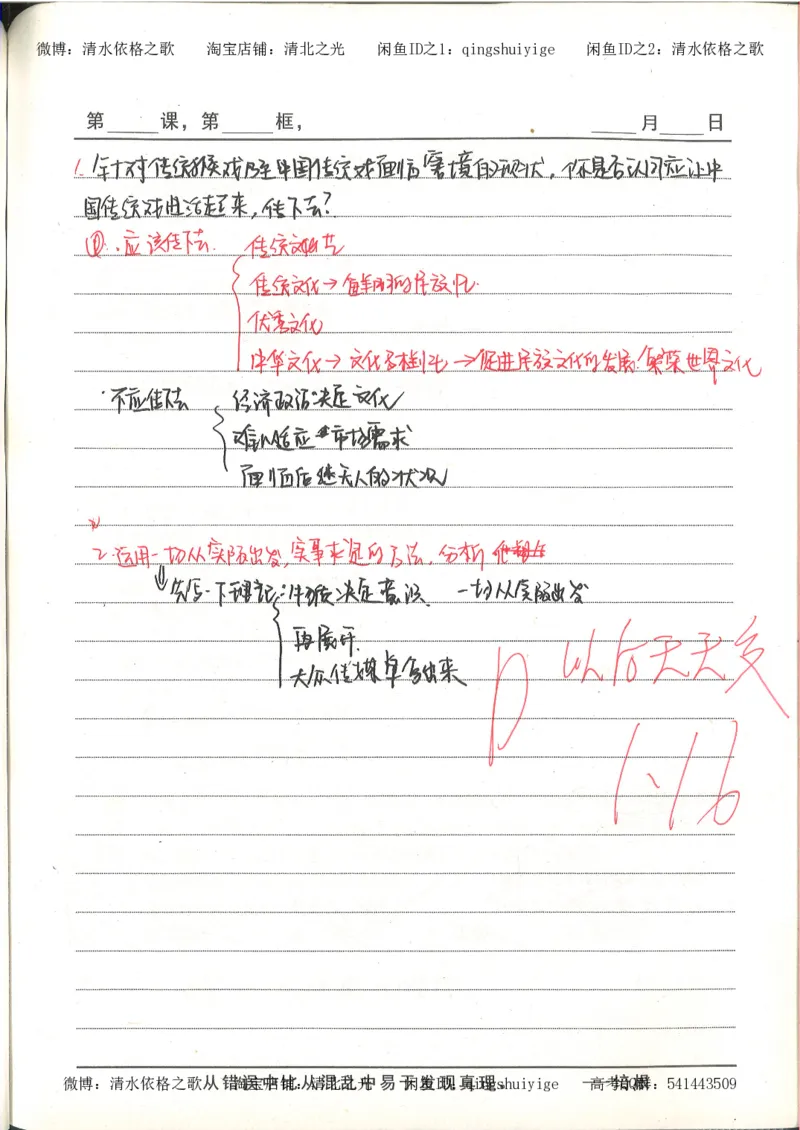 微博：清水依格之歌 淘宝店铺：清北之光 闲鱼ID之1：qingshuiyige 闲鱼ID之2：清水依格之歌
第____课，第____框， ____月____日
1. 针对传统猴戏乃至中国传统戏面临窘境的现状，你是否认同应让中
国传统戏曲活起来，传下去？
①．应该传下去． 传统文艺
传统文化→鲜明的民族性．
优秀文化
中华文化→文化多样性→促进民族文化的发展．繁荣世界文化
·不应传下去 经济政治决定文化
难以适应市场需求
面临后继无人的状况
2. 运用一切从实际出发，实事求是的方法，分析
先写一下理论：物质决定意识． 一切从实际出发
再展开．
大众传媒单会出来
以后天天交
1.16
微博：清水依格之歌 淘宝店铺：清北之光 闲鱼ID：qingshuiyige 高考QQ群：541443509
从错误中比从混乱中易于发现真理。 ——培根